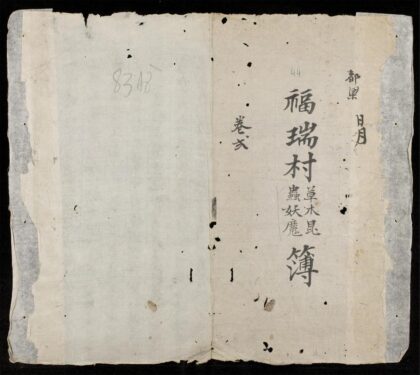 都梁
日月
44
福瑞村草木昆蟲妖魔簿
卷弍